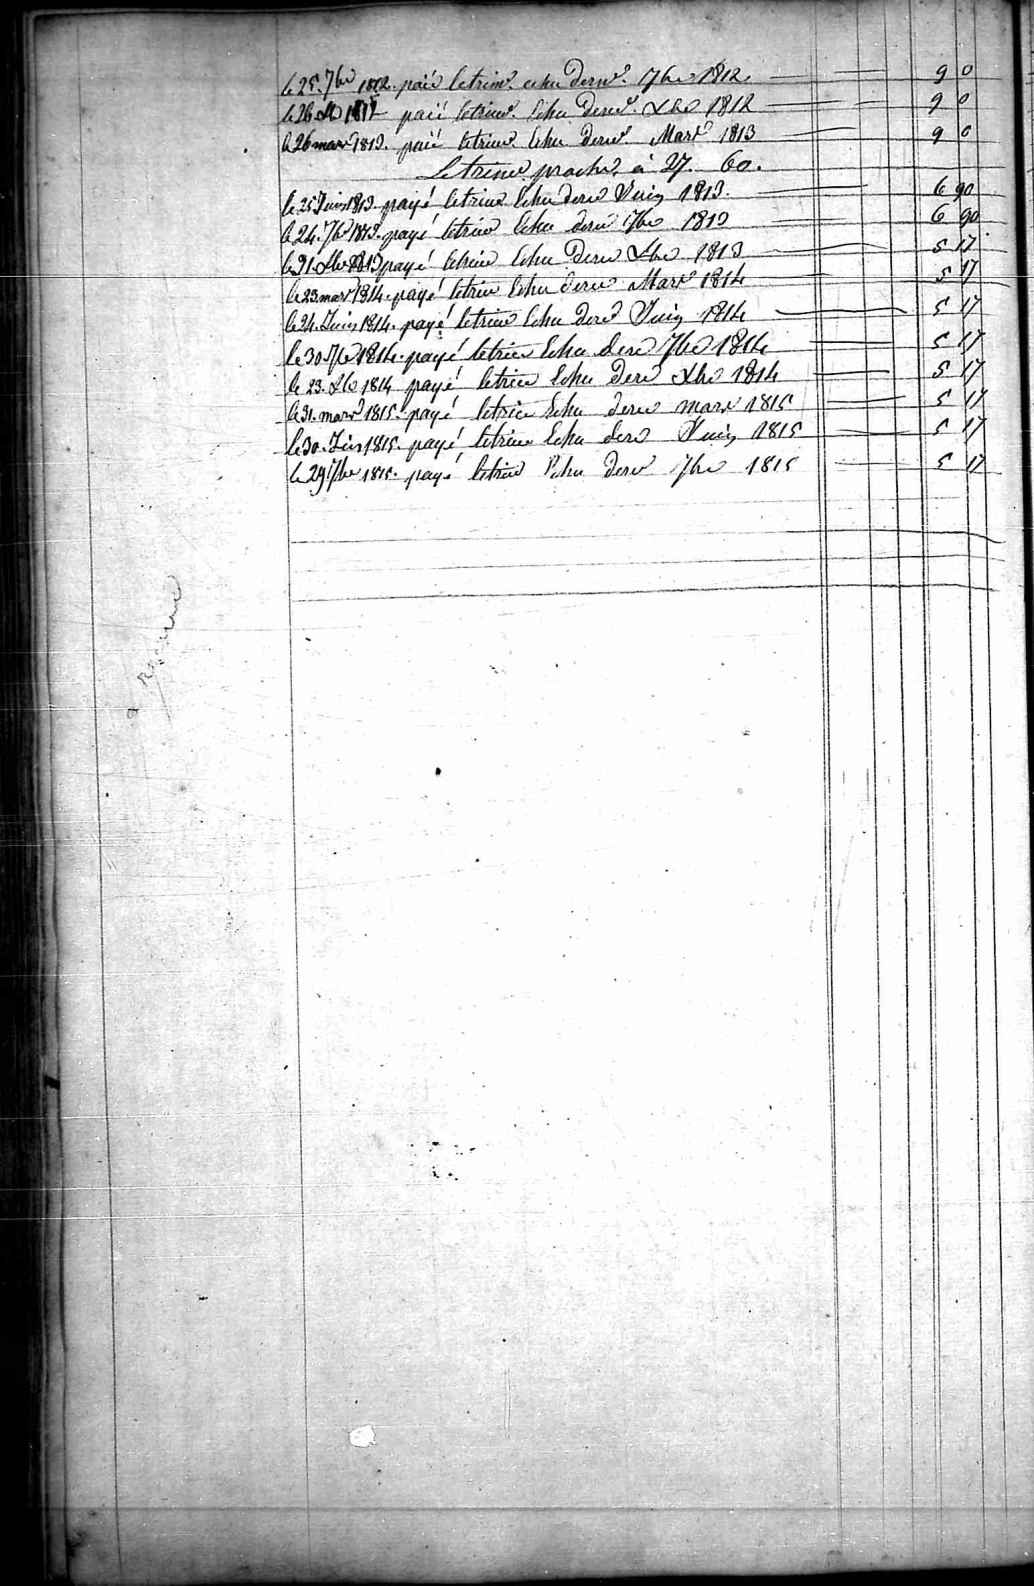 le 25. 7bre 1812. paié letrim.e echu dern.r 7bre 1812. 9 0
le 26 Xbre 1812 paié letrim.e Echu dern.r Xbre 1812 9 0
le 26 mars 1813. paié letrim.e Echu dern.r Mars 1813 9 0
Letrim.e proch.n à 27. 60.
le 25 Juin 1813. payé letrim.e Echu dern.r Juin 1813. 6 90
le 24. 7bre 1813. payé letrim.e Echu dern.r 7bre 1813 6 90
le 31. Xbre 1813 payé letrim.e Echu dern.r Xbre 1813 5 17
le 23 mars 1814. payé letrim.e Echu dern.r Mars 1814 5 17
le 24. Juin 1814. payé letrim.e Echu der.r Juin 1814 5 17
le 30. 7bre 1814. payé letrim.e Echu der.r 7bre 1814 5 17
le 23. Xbre 1814 payé letrim.e Echu der.r Xbre 1814 5 17
le 31. mars 1815. payé letrim.e Echu dern.r mars 1815 5 17
le 30. Juin 1815. payé letrim.e Echu der.r Juin 1815 5 17
le 29 7bre 1815. payé letrim.e Echu dern.r 7bre 1815 5 17